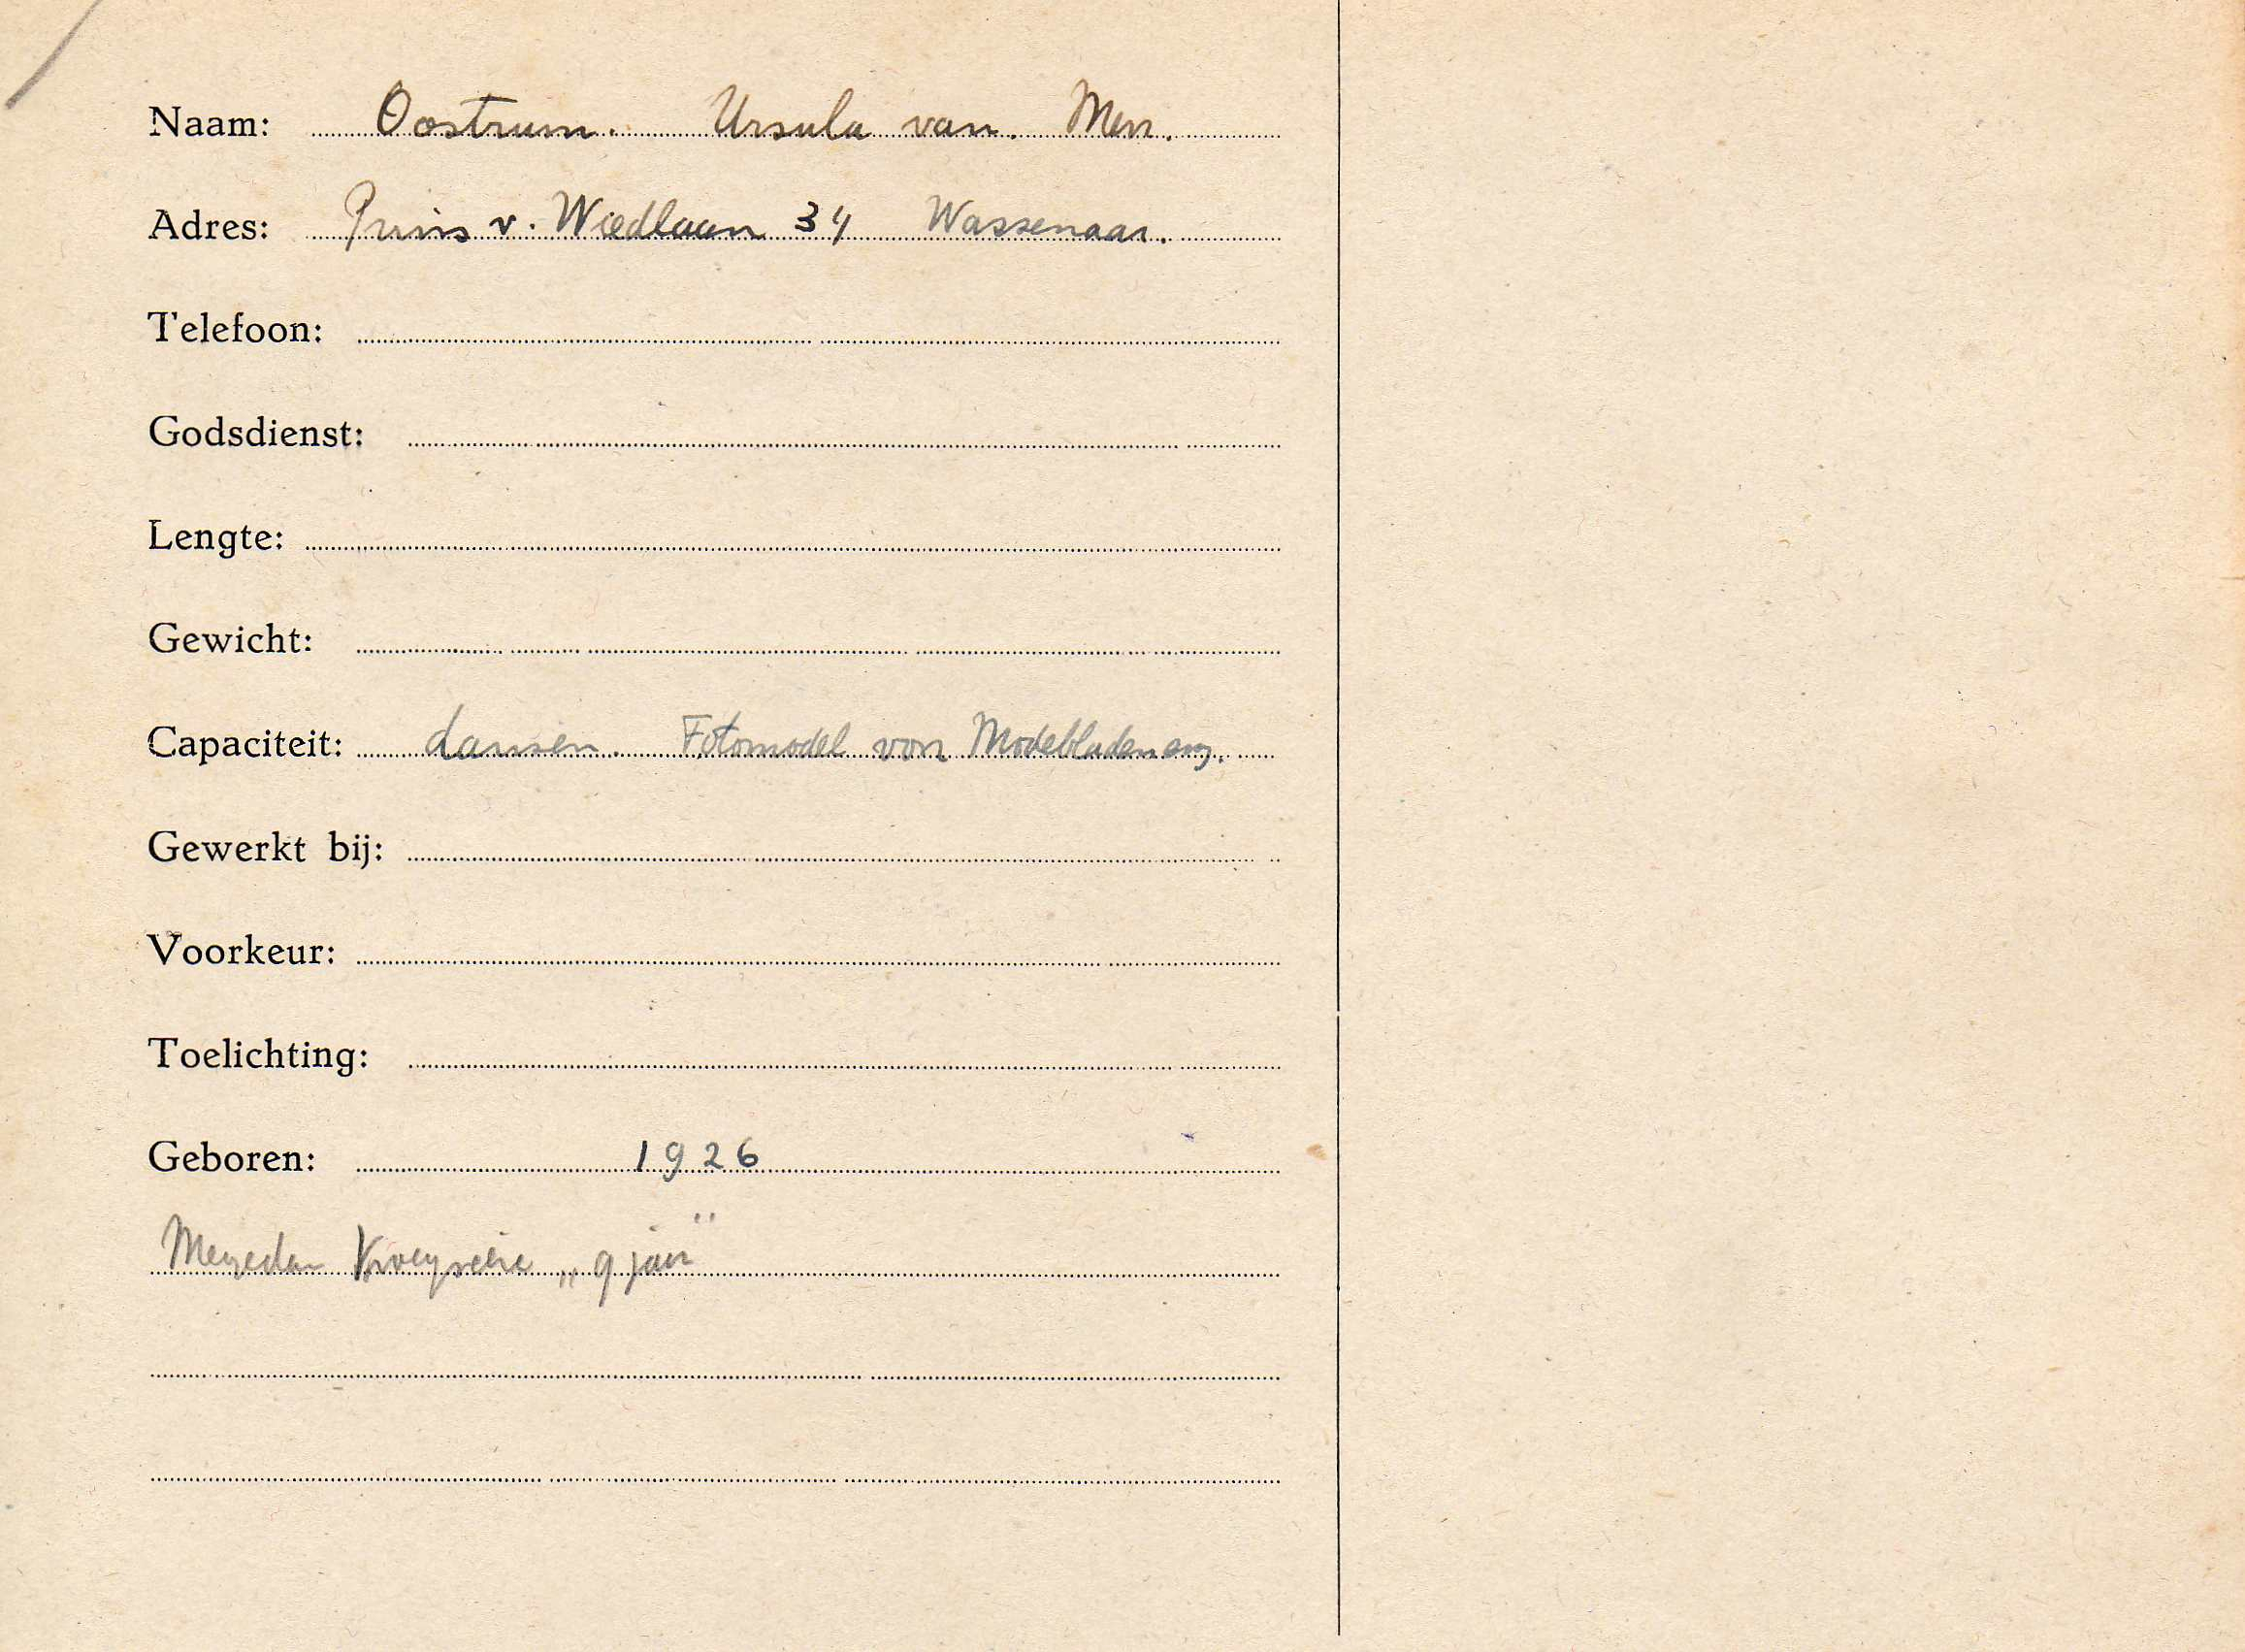 Naam: Oostrum. Ursula van. Mevr.
Adres: Prins v. Wiedlaan 34 Wassenaar.
Telefoon:
Godsdienst:
Lengte:
Gewicht:
Capaciteit: dansen. Fotomodel von Modebladen enz.
Gewerkt bij:
Voorkeur:
Toelichting:
Geboren: 1926
„ 9 jaar"